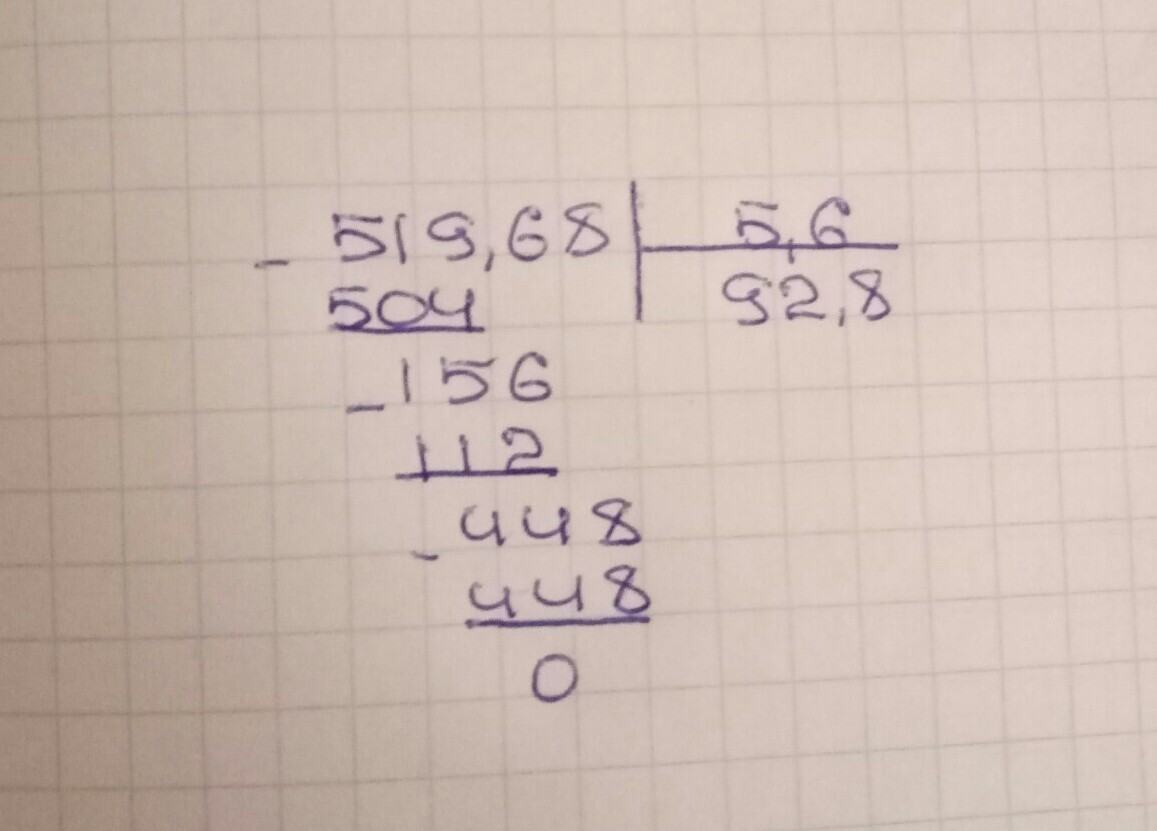 - 519,68 | 5,6
504 | 92,8
- 156
112
- 448
448
0